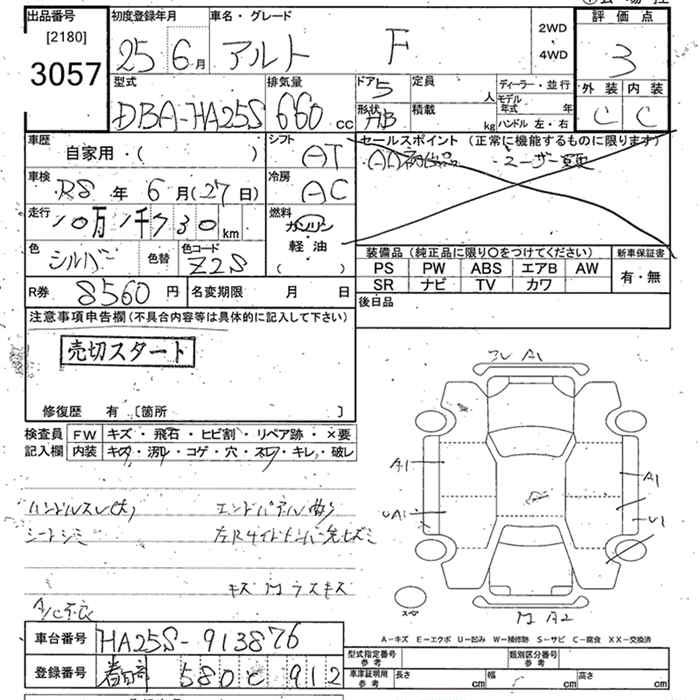 出品番号
[2180]
3057
初度登録年月
25 6月
車名・グレード
アルト F
2WD
・
4WD
評価点
3
外装 内装
C C
型式
DBA-HA25S
排気量
660 cc
ドア
5
定員
人
形状
HB
積載
kg
ディーラー・並行
モデル年式 年
ハンドル 左・右
車歴
自家用・( )
シフト
AT
セールスポイント (正常に機能するものに限ります)
車検
R8 年 6 月(27日)
冷房
AC
走行
10万1千730 km
燃料
ガソリン
軽油
( )
色
シルバー
色替
色コード
Z2S
装備品(純正品に限り○をつけてください)
PS PW ABS エアB AW
SR ナビ TV カワ
新車保証書
有・無
R券 8560 円
名変期限 月 日
後日品
注意事項申告欄(不具合内容等は具体的に記入して下さい)
売切スタート
修復歴 有〔箇所 〕
検査員
記入欄
FW キズ・飛石・ヒビ割・リペア跡・×要
内装 キズ・汚れ・コゲ・穴・スレ・キレ・破レ
ハンドルスレ(大)
シートシミ
エンドパネル曲り
A1
A1
A1
UA1
U1
A2
A-キズ E-エクボ U-凹み W-補修跡 S-サビ C-腐食 XX-交換済
車台番号 HA25S-913876
登録番号 春日部 580 と 912
型式指定番号
参考
類別区分番号
参考
車庫証明用
参考
長さ cm
幅 cm
高さ cm